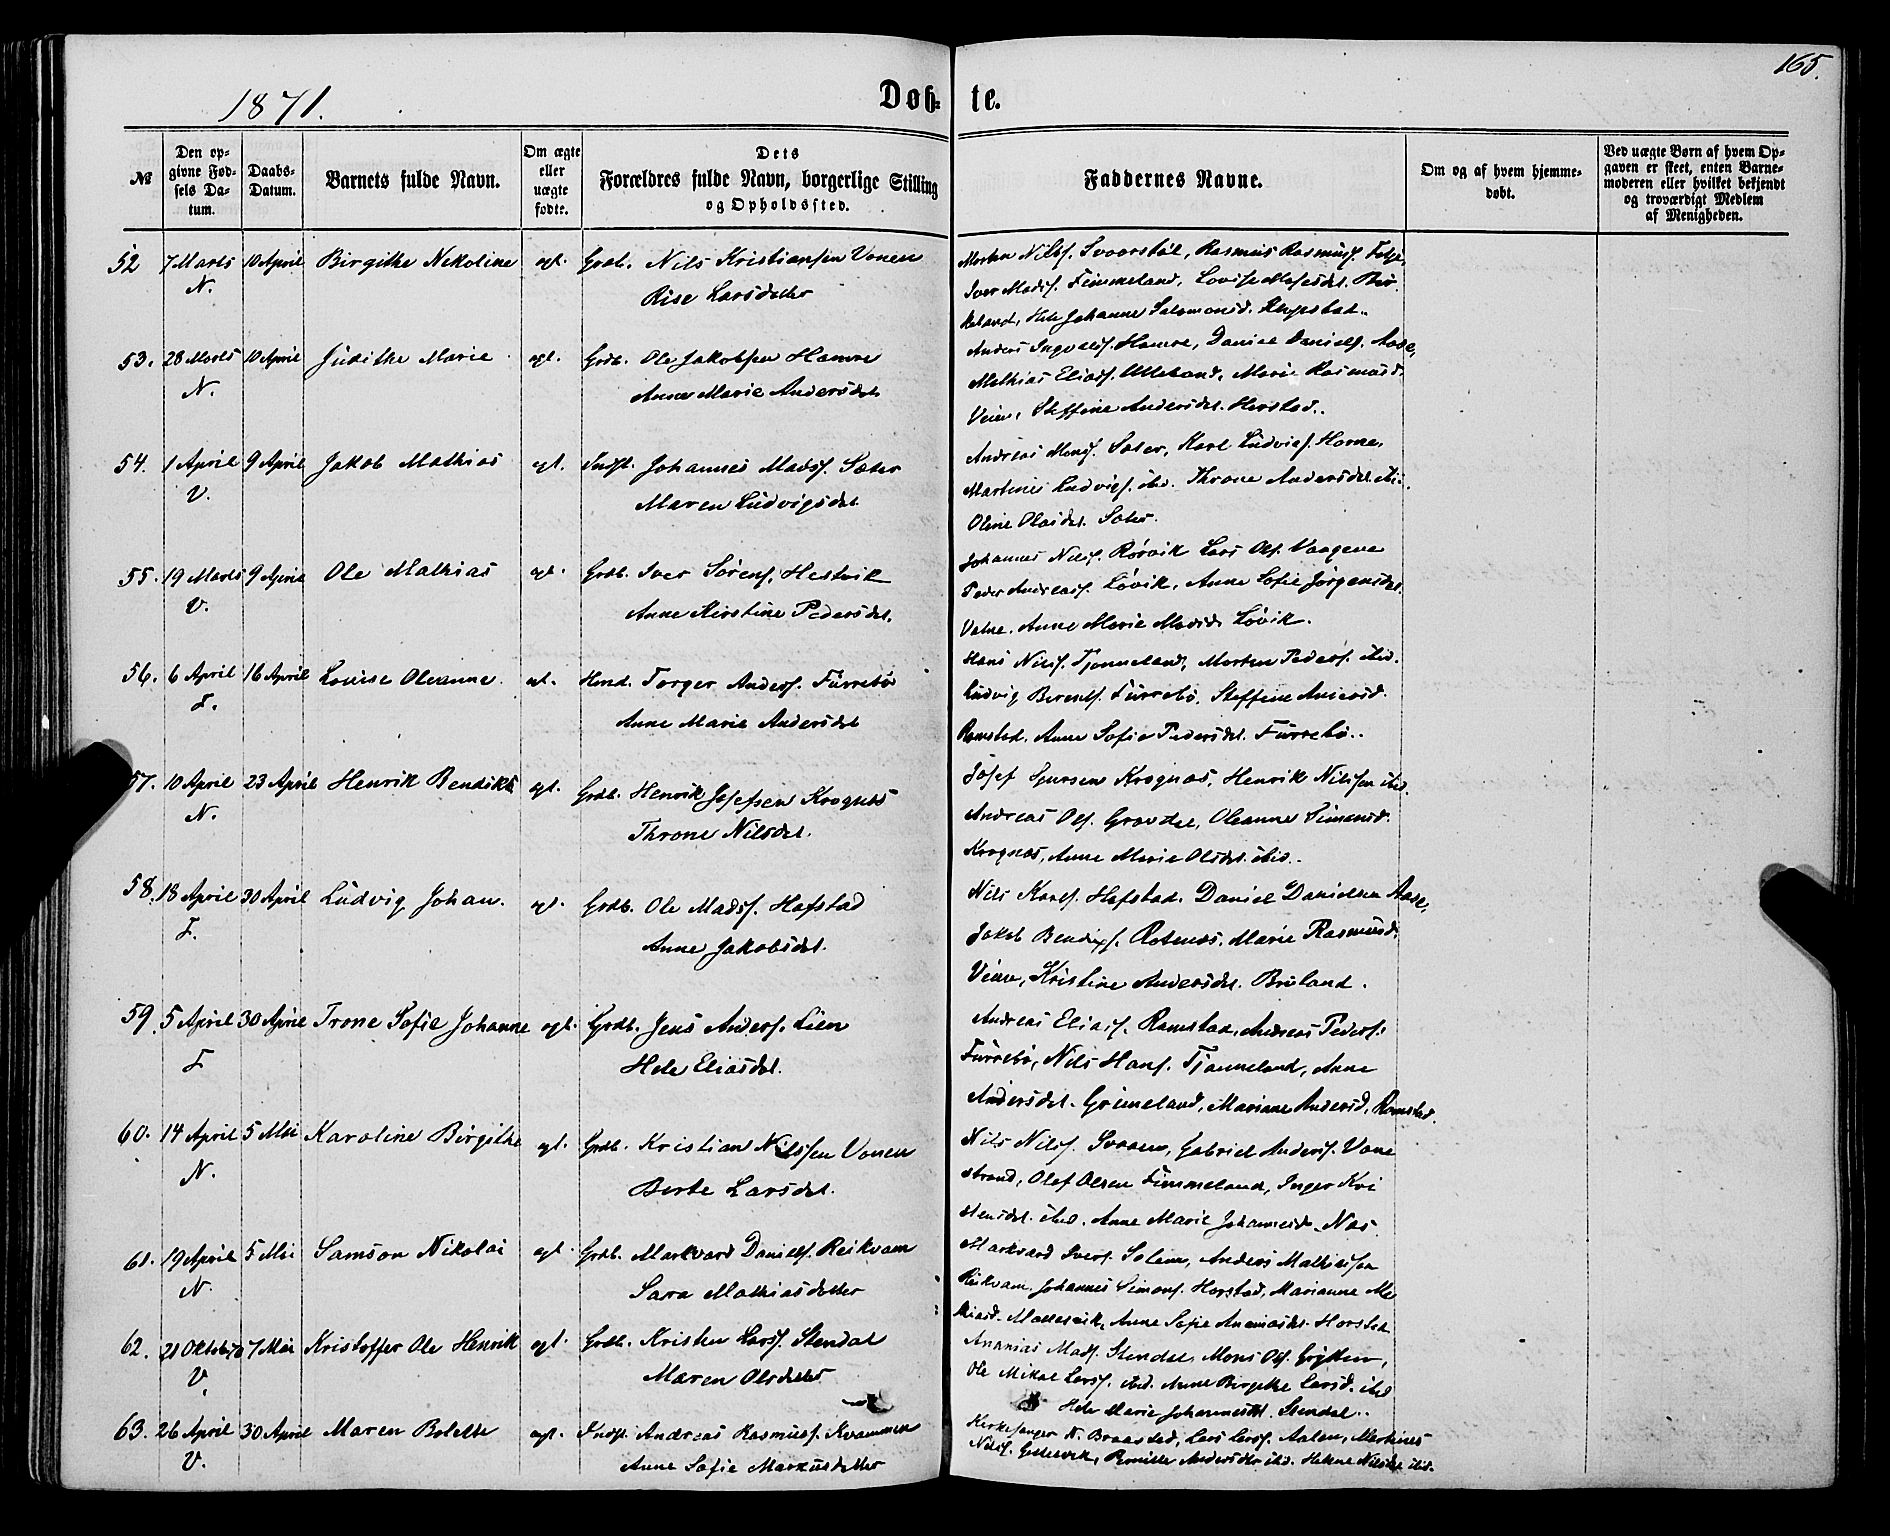 165.
1871.
Døb= te.
№
Den op-
givne Fød-
sels Da-
tum.
Daabs-
Datum.
Barnets fulde Navn.
Om ægte
eller
uægte
fødte.
Dets
Forældres fulde Navn, borgerlige Stilling
og Opholdssted.
Faddernes Navne.
Om og af hvem hjemme-
døbt.
Ved uægte Børn af hvem Op-
gaven er skeet, enten Barne-
moderen eller hvilket bekjendt
og troværdigt Medlem
af Menigheden.
52 7 Marts 10 April Birgithe Nikoline ægt. Grdb. Nils Kristiansen Vonen
N. Larsdatter
Morten Nilss.
Iver Madss. Fimmeland,
Johanne Salomonsd.
53. 28 Marts 10 April Judithe Marie ægt. Grdb. Ole Jakobsen Hamre
N. Anne Marie Andersdt.
Anders Hamre, Daniel Daniels. Aase,
Mathias Eliass. Marie Rasmusd.
Veien, Steffine Andersdt. Horstad.
54. 1 April 9 April Jakob Mathias ægt. Indst. Johannes Madss. Sæter
V. Maren Ludvigsdt.
Andreas Monss. Sæter, Karl Ludvigs.
Martines Ludvigs. ibid. Throne Andersdt. ibid.
Oline Olsdt. Sæter.
55. 19 Marts 9 April Ole Mathias ægt. Grdb. Iver Sørens. Hestvik
V. Anne Kirstine Pedersdt.
Johannes Nilss. Rørvik Lars Ols. Vaagene
Peder Andreass. Løvik, Anne Sofie Jørgensdt.
Anne Marie Madsd. Løvik.
56. 6 April 16 April Louise Oleanne ægt. Torger Anders. Furrebø
F. Anne Marie Andersdt
Hans Nilss. Tjønneland, Morten Peders. ibid.
Ludvig Berents. Furrebø, Steffine
Ramstad, Anne Sofie Pedersdt. Furrebø.
57. 10 April 23 April Henrik Bendikt ægt. Grdb. Henrik Josefsen Krognæs
N. Throne Nilsdt.
Josef Krognæs, Henrik Nilssen ibid.
Andreas Ols. Oleanne Simonsd.
Krognæs, Anne Marie Olsdt. ibid.
58. 18 April 30 April Ludvig Johan. ægt. Grdb. Ole Madss. Hafstad
F. Anne Jakobsdt.
Nils Hafstad. Daniel Danielsen Aase,
Jakob Bendixs. Marie Rasmusd.
Veien, Kristine Andersdt. Bruland.
59. 5 April 30 April Trone Sofie Johanne ægt. Grdb. Jens Anders. Lien
F. Eliasdt.
Andreas Eliass. Ramstad, Andreas Peders.
Furrebø, Nils Hans. Tjønneland, Anne
Andersdt. Grimeland, Mariane Andersd. Ramstad.
60. 14 April 5 Mai Karoline Birgithe ægt. Grdb. Kristian Nilssen Vonen
N. Berte Larsdt.
Nils Nilss. Gabriel Anders. Vone
strand, Olef Olsen Fimmeland, Inger Kri
stensdt. ibid. Anne Marie Johannesd. Næs
61. 19 April 5 Mai Samson Nikolai ægt. Grdb. Markvard Daniels. Reikvam
N. Sara Mathiasdatter
Markvard Ivers. Solem, Anders Mathiassen
Reikvam, Johannes Simons. Horstad, Marianne
Anne Sofie Horstad
62. 21 Oktober 70 7 Mai Kristoffer Ole Henrik ægt. Grdb. Kristen Larss. Stendal
V. Maren Olsdatter
Ananias Madss. Stendal, Mons Ols.
Ole Mikal Larss. ibid. Anne Birgithe Larsd. ibid
Marie Johannesdt. Stendal.
63. 26 April 30 April Maren Bolette ægt. Indst. Andreas Rasmuss. Kvammen
V. Anne Sofie Markusdatter
Kirkesanger N. Braastad, Lars Larss. Martines
Nilss. Pernille Andersdtr ibid. Helene Nilsdt. ibid.